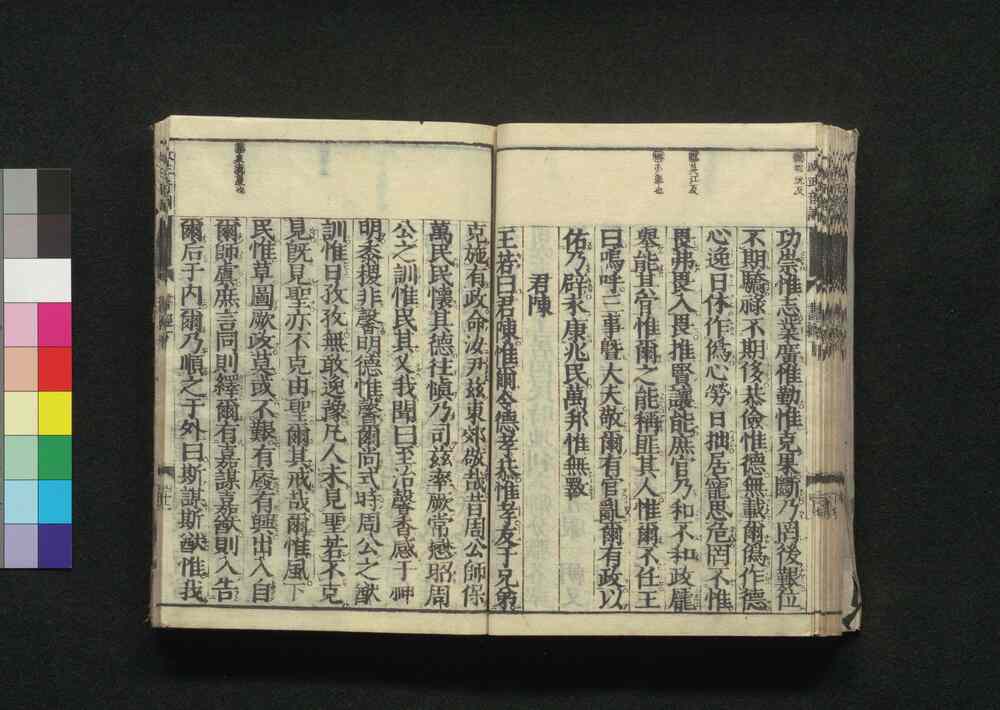 功崇惟志業廣惟勤惟克果斷乃罔後艱位
不期驕祿不期侈恭儉惟德無載爾僞作德
心逸日休作僞心勞日拙居寵思危罔不惟
畏弗畏入畏推賢讓能庶官乃和不和政厖
舉能其官惟爾之能稱匪其人惟爾不任王
曰嗚呼三事曁大夫敬爾有官亂爾有政以
佑乃辟永康兆民萬邦惟無斁
君陳
王若曰君陳惟爾令德孝恭惟孝友于兄弟
克施有政命汝尹茲東郊敬哉昔周公師保
萬民民懷其德往愼乃司茲率厥常懋昭周
公之訓惟民其乂我聞曰至治馨香感于神
明黍稷非馨明德惟馨爾尚式時周公之猷
訓惟日孜孜無敢逸豫凡人未見聖若不克
見旣見聖亦不克由聖爾其戒哉爾惟風下
民惟草圖厥政莫或不艱有廢有興出入自
爾師虞庶言同則繹爾有嘉謀嘉猷則入告
爾后于內爾乃順之于外曰斯謀斯猷惟我